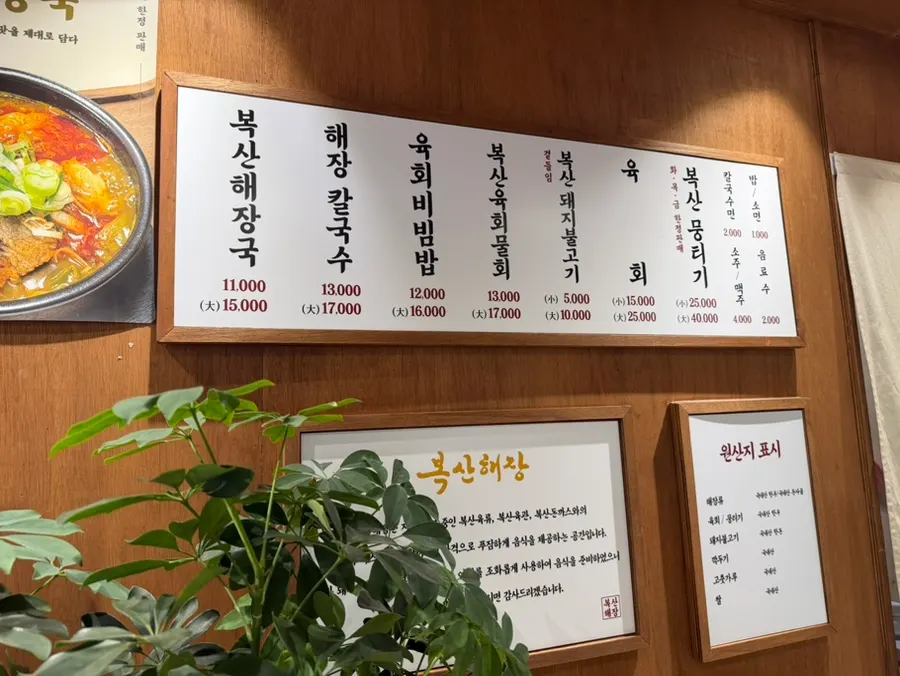 한정 판매
맛을 제대로 담다
복산해장국
11.000
(大) 15.000
해장 칼국수
13.000
(大) 17.000
육회비빔밥
12.000
(大) 16.000
복산육회물회
13.000
(大) 17.000
곁들임
복산 돼지불고기
(小) 5.000
(大) 10.000
육회
(小) 15.000
(大) 25.000
화·목·금 한정판매
복산 뭉티기
(小) 25.000
(大) 40.000
칼국수면
2.000
밥/소면
1.000
소주/맥주
4.000
음료수
2.000
복산해장
중인 복산육류, 복산육관, 복산돈까스와의
격으로 푸짐하게 음식을 제공하는 공간입니다.
를 조화롭게 사용하여 음식을 준비하였으니
시면 감사드리겠습니다.
복산
해장
원산지 표시
해장류
육회 / 뭉티기 국내산 한우
돼지불고기 국내산 한돈
깍두기 국내산
고춧가루 국내산
쌀 국내산